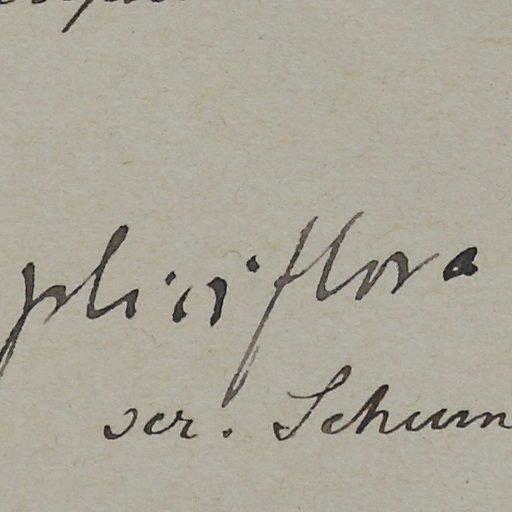 pliciflora
scr. Schum